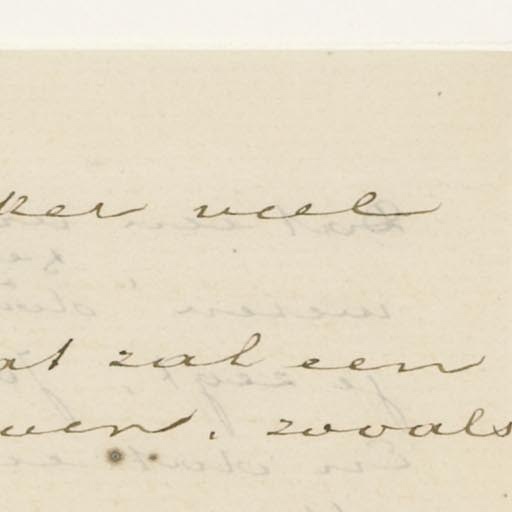 ker veel
at zal een
ven. zooals